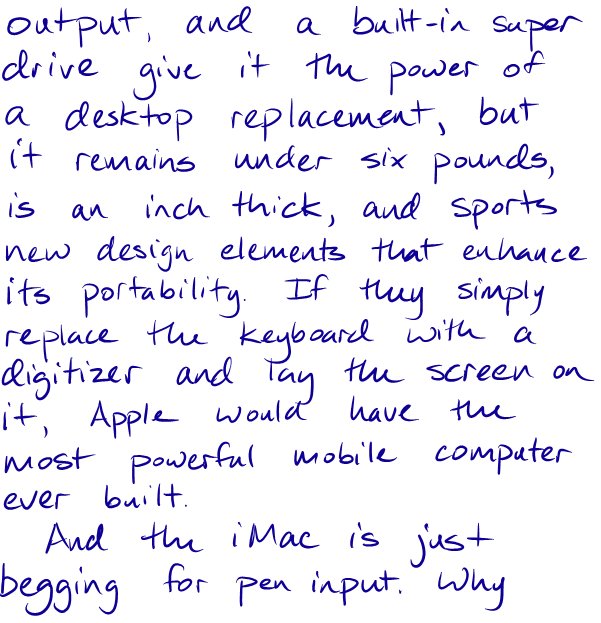 output, and a built-in super
drive give it the power of
a desktop replacement, but
it remains under six pounds,
is an inch thick, and sports
new design elements that enhance
its portability. If they simply
replace the keyboard with a
digitizer and lay the screen on
it, Apple would have the
most powerful mobile computer
ever built.
And the iMac is just
begging for pen input. Why